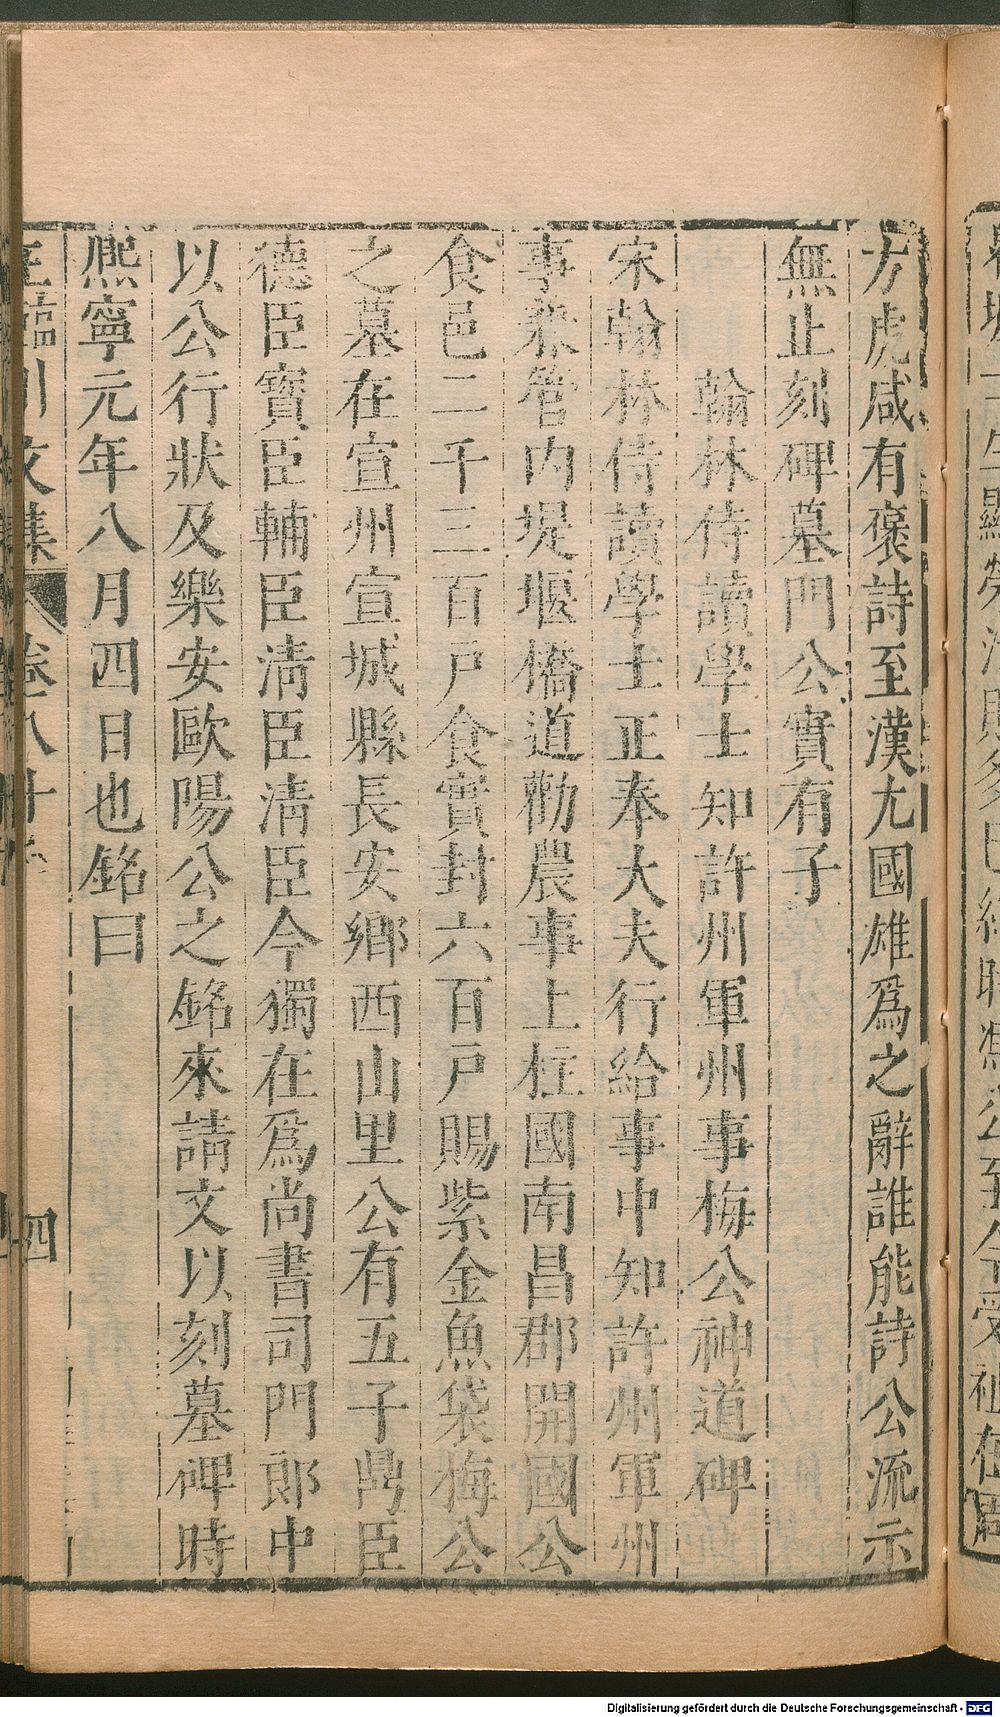 方虎咸有褒詩至漢尤國雄爲之辭誰能詩公流示
無止刻碑墓門公實有子
翰林侍讀學士知許州軍州事梅公神道碑
宋翰林侍讀學士正奉大夫行給事中知許州軍州
事兼管内堤堰橋道勸農事上柱國南昌郡開國公
食邑二千三百户食實封六百户賜紫金魚袋梅公
之墓在宣州宣城縣長安鄉西山里公有五子鼎臣
德臣寶臣輔臣清臣清臣今獨在爲尚書司門郎中
以公行狀及樂安歐陽公之銘來請文以刻墓碑時
熈寧元年八月四日也銘曰
文集
卷八十
四
Digitalisierung gefördert durch die Deutsche Forschungsgemeinschaft - DFG